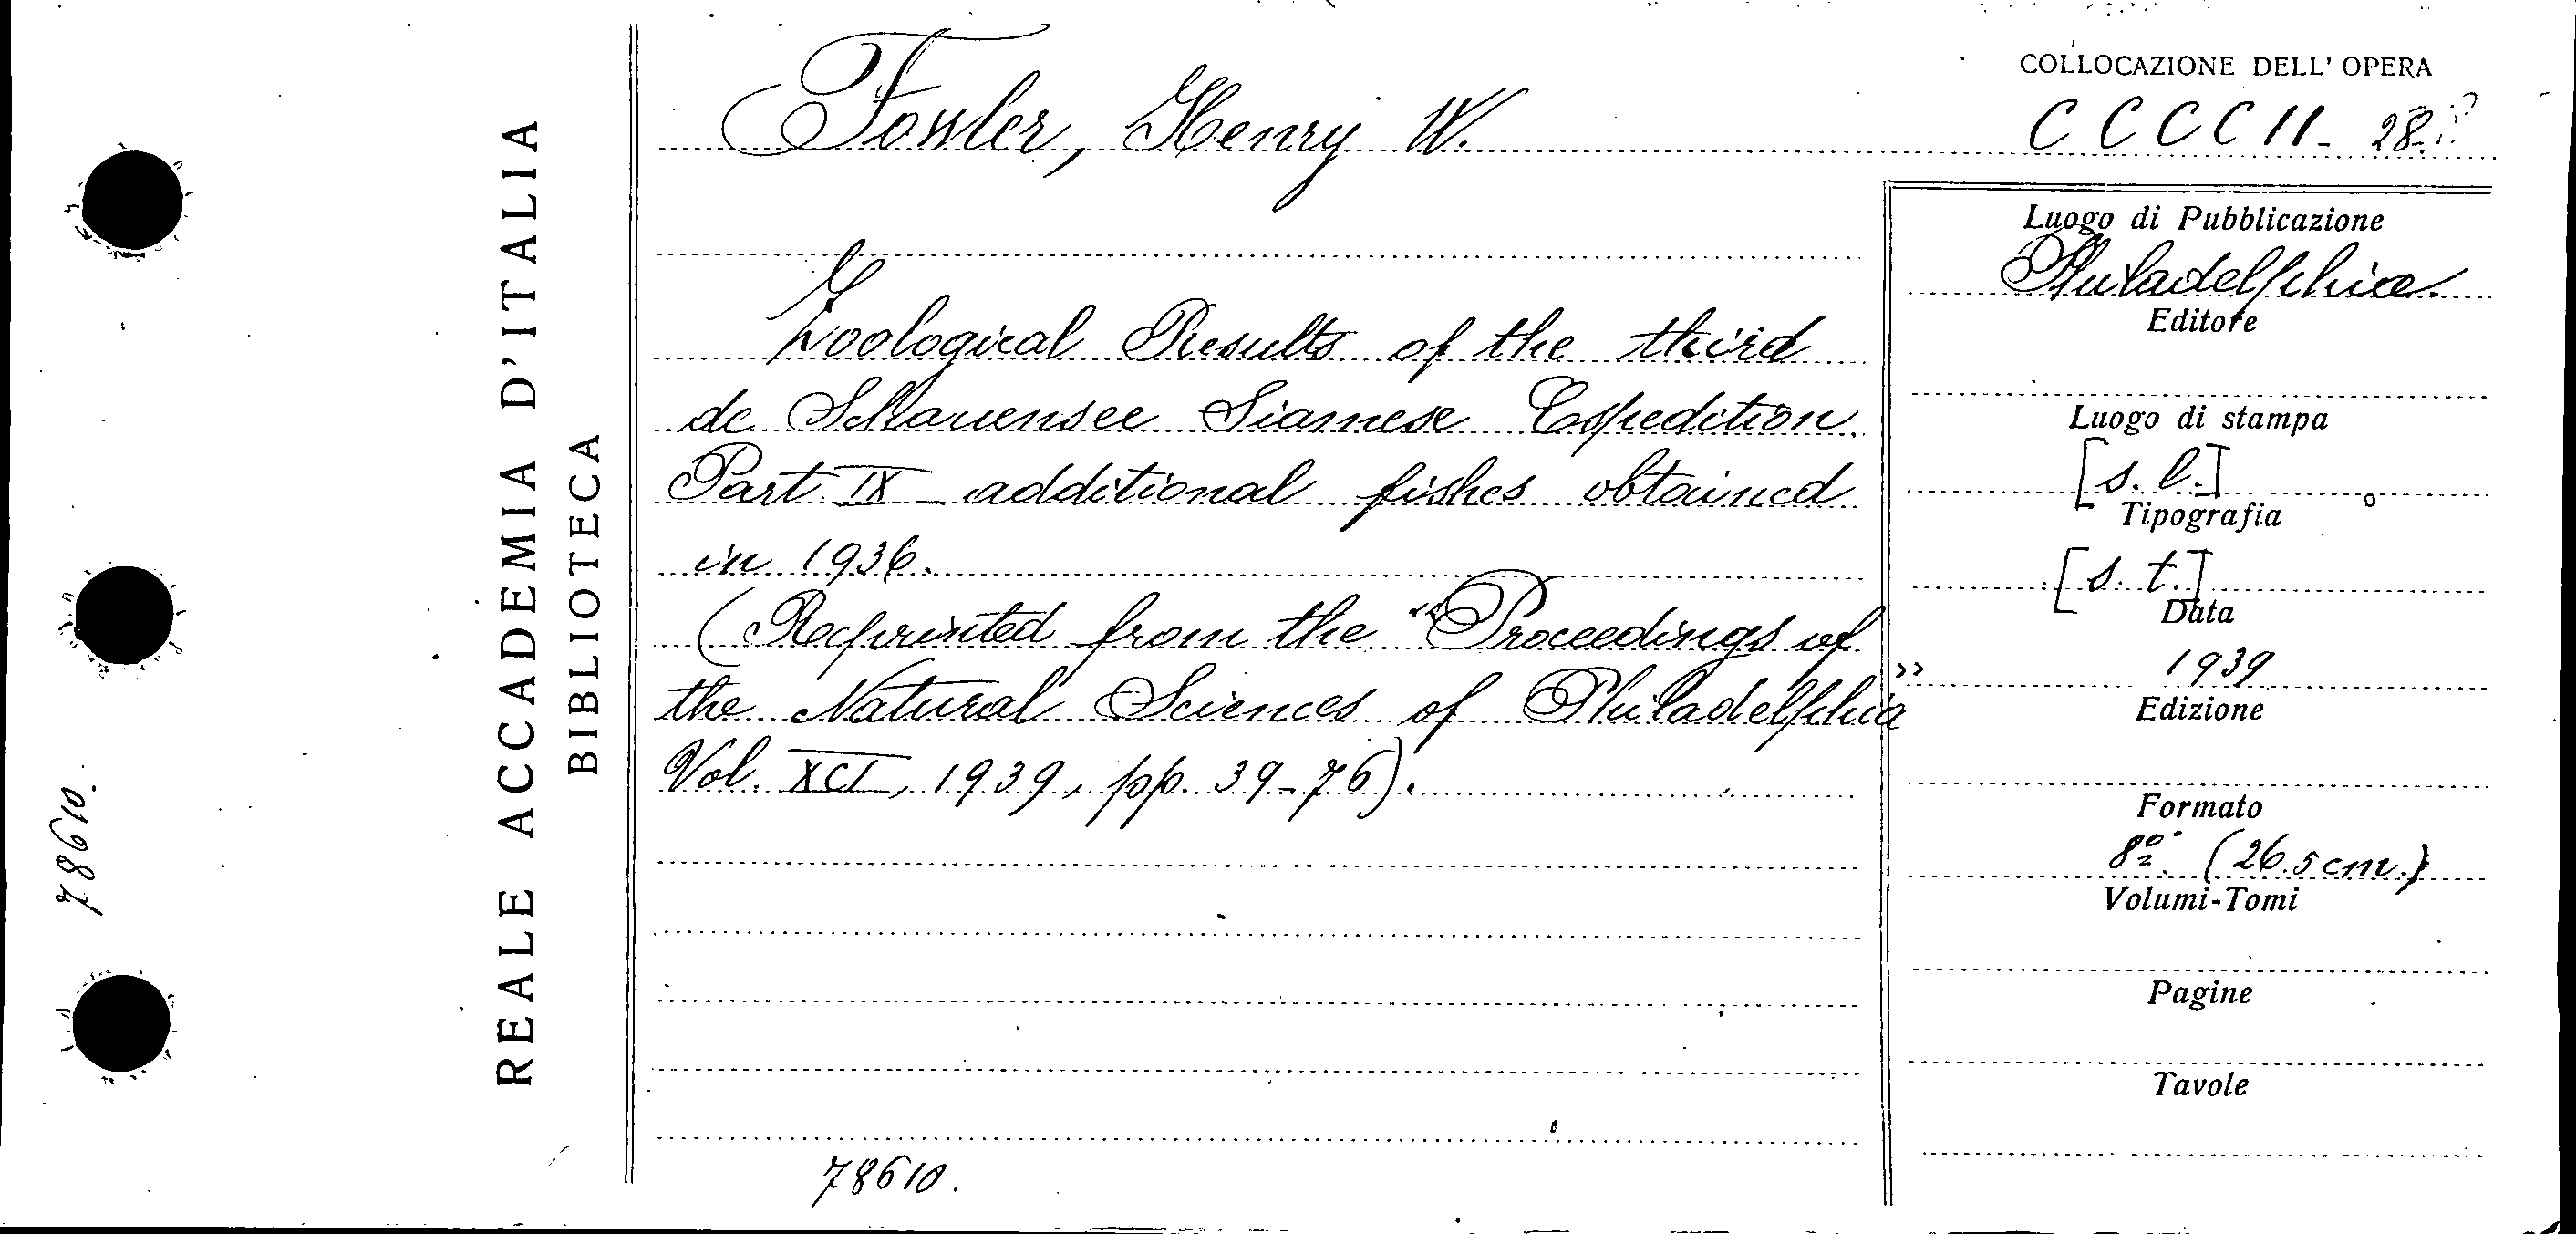 REALE ACCADEMIA D'ITALIA
BIBLIOTECA
78610.
Fowler, Henry W.
Zoological Results of the third
de Schauensee Siamese Expedition.
Part IX - additional fishes obtained
in 1936.
(Reprinted from the "Proceedings of
the Natural Sciences of Philadelphia"
Vol. XCI, 1939, pp. 39-76).
78610.
COLLOCAZIONE DELL' OPERA
CCCC II - 28
Luogo di Pubblicazione
Philadelphia.
Editore
Luogo di stampa
[s. l.]
Tipografia
[s. t.]
Data
1939
Edizione
Formato
8º. (26.5 cm.)
Volumi-Tomi
Pagine
Tavole